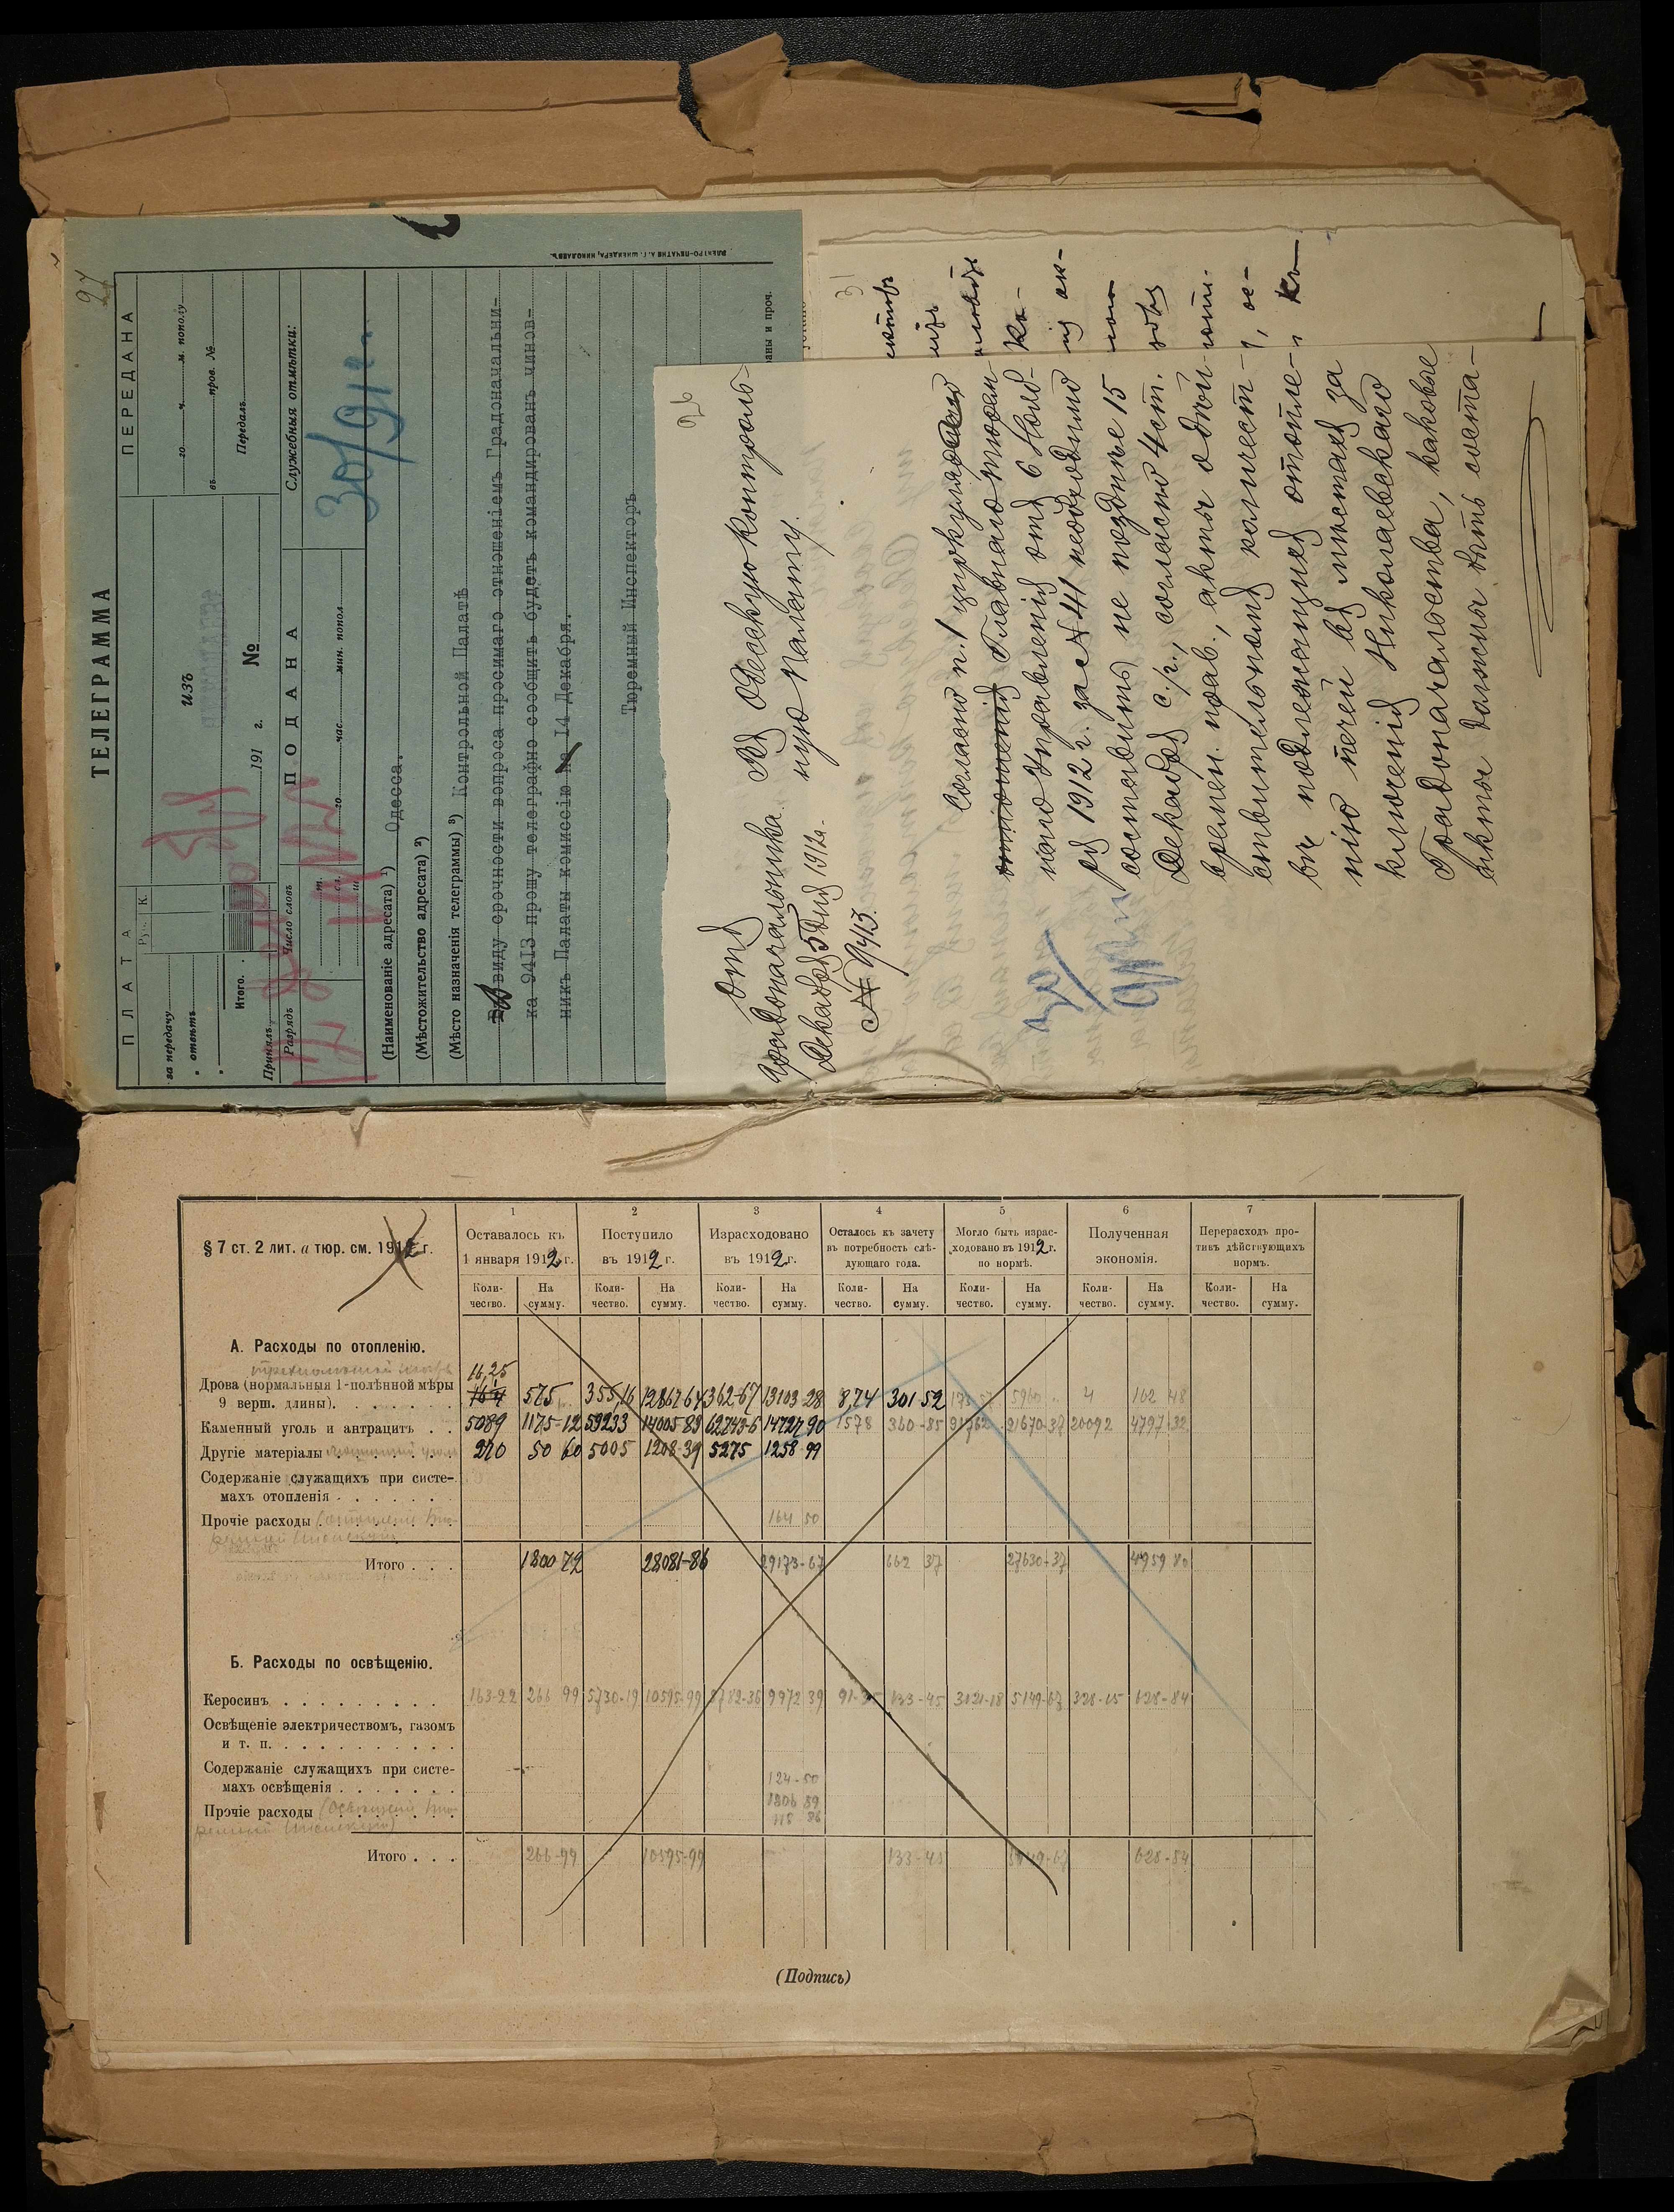 97
ТЕЛЕГРАММА
ПЛАТА
Руб. К.
за передачу
„ отвѣтъ
„
Итого.
Принялъ
изъ
№
191 г.
ПЕРЕДАНА
го ч. м. пополу
въ пров. №
Передалъ
Разрядъ
Число словъ
ПОДАНА
го час. мин. попол.
Служебныя отмѣтки:
30/91 г.
(Наименованіе адресата) ¹) Одесса.
(Мѣстожительство адресата) ²)
(Мѣсто назначенія телеграммы) ³) Контрольной Палатѣ
Въ виду срочности вопроса просимаго этношеніемъ Градоначальни-
ка 9413 прошу телеграфно сообщить будетъ командированъ чинов-
никъ Палаты комиссію на 14 Декабря.
Тюремный Инспекторъ
ЭЛЕКТРО-ПЕЧАТНЯ А. Г. ШНЕЙДЕРА, НИКОЛАЕВЪ.
аны и проч.
96
Отъ
Градоначальника.
Декабря 5 дня 1912 г.
№ 9413.
Въ Одесскую Контроль-
ную Палату.
Согласно п. 1 циркуляра
отношенія Главнаго Тюрем-
наго Управленія отъ 6 Нояб-
ря 1912 г. за № 41 необходимо
составить не позднѣе 15
Декабря с./г., согласно 4 ст.
времен. прав., акты о дѣй-
ствительномъ количест-
вѣ подлежащихъ отопле-
нію печей въ мѣстахъ за
ключенія Николаевскаго
Градоначальства, каковые
акты должны быть соста-
30/
91
31
ка-
§ 7 ст. 2 лит. а тюр. см. 1912 г.
1 2 3 4 5 6 7
Оставалось къ 1 января 1912 г.
Поступило въ 1912 г.
Израсходовано въ 1912 г.
Осталось къ зачету въ потребность слѣ-дующаго года.
Могло быть израс-ходовано въ 1912 г. по нормѣ.
Полученная экономія.
Перерасходъ про-тивъ дѣйствующихъ нормъ.
Коли-чество. На сумму. Коли-чество. На сумму. Коли-чество. На сумму. Коли-чество. На сумму. Коли-чество. На сумму. Коли-чество. На сумму. Коли-чество. На сумму.
А. Расходы по отопленію.
16,25
Дрова (нормальныя 1-полѣнной мѣры
9 верш. длины) 164 575 355,16 12867 64 362-67 13103 28 8,74 301 52 4 102 48
Каменный уголь и антрацитъ 5089 1175-12 59233 14005-83 62743-6 14727 90 1578 360-85 91762 21670-37 20092 4797 32
Другіе матеріалы 270 50 60 5005 1208-39 5275 1258-99
Содержаніе служащихъ при систе-
махъ отопленія
Прочіе расходы (отопленіе Тю- 164 50
ремной Инспекціи)
Итого 1800 72 28081-86 29173-67 662 37 27630-37 4959 80
Б. Расходы по освѣщенію.
Керосинъ 163-22 266 99 5730-19 10595-99 5782-36 9972 39 133-45 3121-18 5149-67 328-15 628-84
Освѣщеніе электричествомъ, газомъ
и т. п.
Содержаніе служащихъ при систе-
махъ освѣщенія 124-50
1806 89
Прочіе расходы (Освѣщеніе Тю- 118 86
ремной Инспекціи)
Итого 266-99 10595-99 133-45 5149-67 628-84
(Подпись)